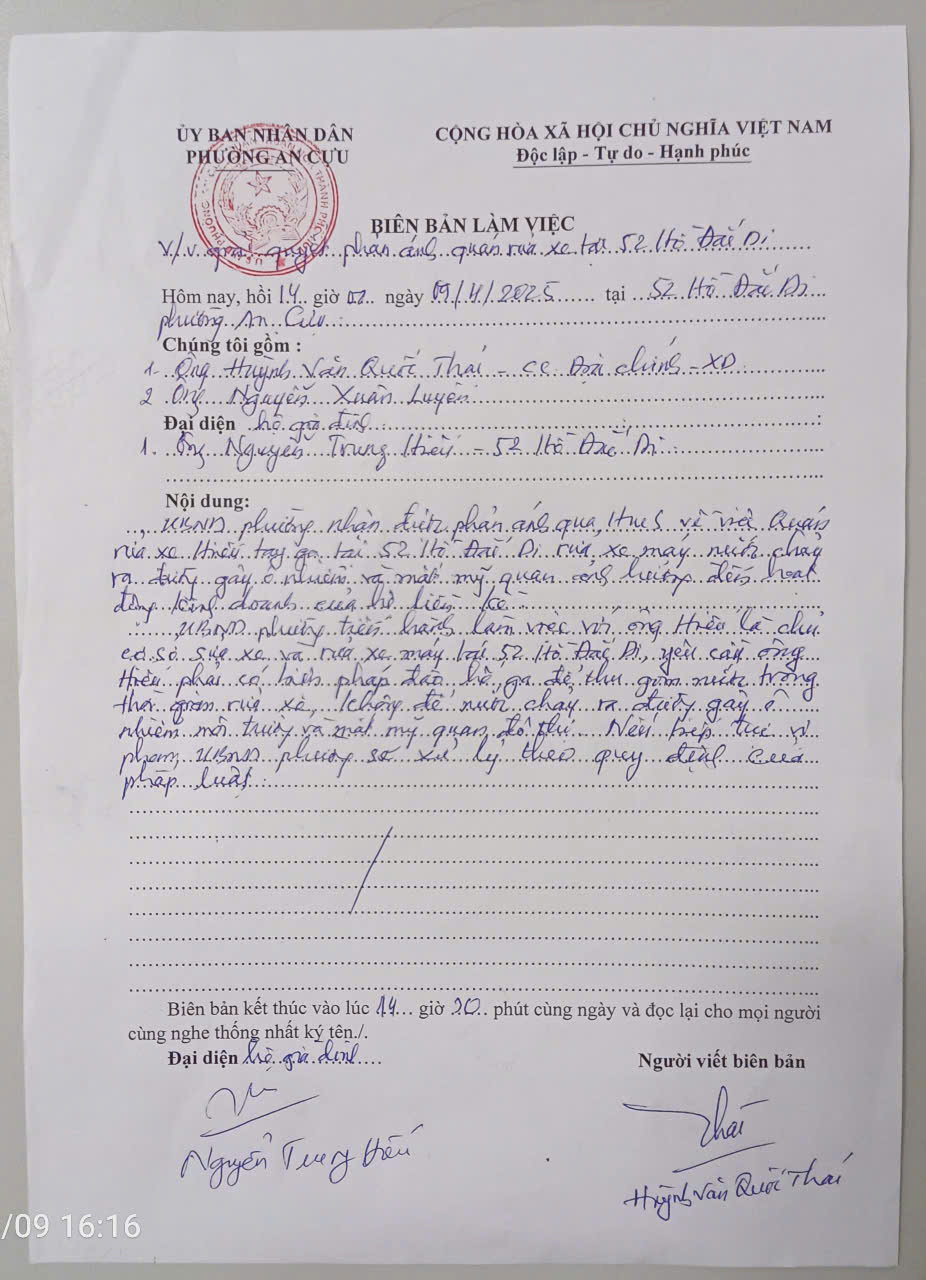 ỦY BAN NHÂN DÂN
PHƯỜNG AN CỰU
CỘNG HÒA XÃ HỘI CHỦ NGHĨA VIỆT NAM
Độc lập - Tự do - Hạnh phúc
BIÊN BẢN LÀM VIỆC
V/v. giải quyết phản ánh quán rửa xe tại 52 Hồ Đắc Di
Hôm nay, hồi 14 giờ 02 ngày 09/4/2025 tại 52 Hồ Đắc Di
phường An Cựu.
Chúng tôi gồm :
1. Ông Huỳnh Văn Quốc Thái - CC Địa chính - XD
2 Ông Nguyễn Xuân Luyên
Đại diện hộ gia đình :
1. Ông Nguyễn Trung Hiếu - 52 Hồ Đắc Di.
Nội dung:
UBND phường nhận được phản ánh qua HueS về việc Quán
rửa xe Hiếu tay ga tại 52 Hồ Đắc Di rửa xe máy nước chảy
ra đường gây ô nhiễm và mất mỹ quan ảnh hưởng đến hoạt
động kinh doanh của hộ liền kề.
UBND phường tiến hành làm việc với ông Hiếu là chủ
cơ sở sửa xe và rửa xe máy tại 52 Hồ Đắc Di, yêu cầu ông
Hiếu phải có biện pháp đào hố, ga để thu gom nước trong
thời gian rửa xe, không để nước chảy ra đường gây ô
nhiễm môi trường và mất mỹ quan đô thị. Nếu tiếp tục vi
phạm, UBND phường sẽ xử lý theo quy định của
pháp luật.
Biên bản kết thúc vào lúc 14 giờ 20 phút cùng ngày và đọc lại cho mọi người
cùng nghe thống nhất ký tên./.
Đại diện hộ gia đình
Người viết biên bản
Thái
Nguyễn Trung Hiếu
Huỳnh Văn Quốc Thái
/09 16:16